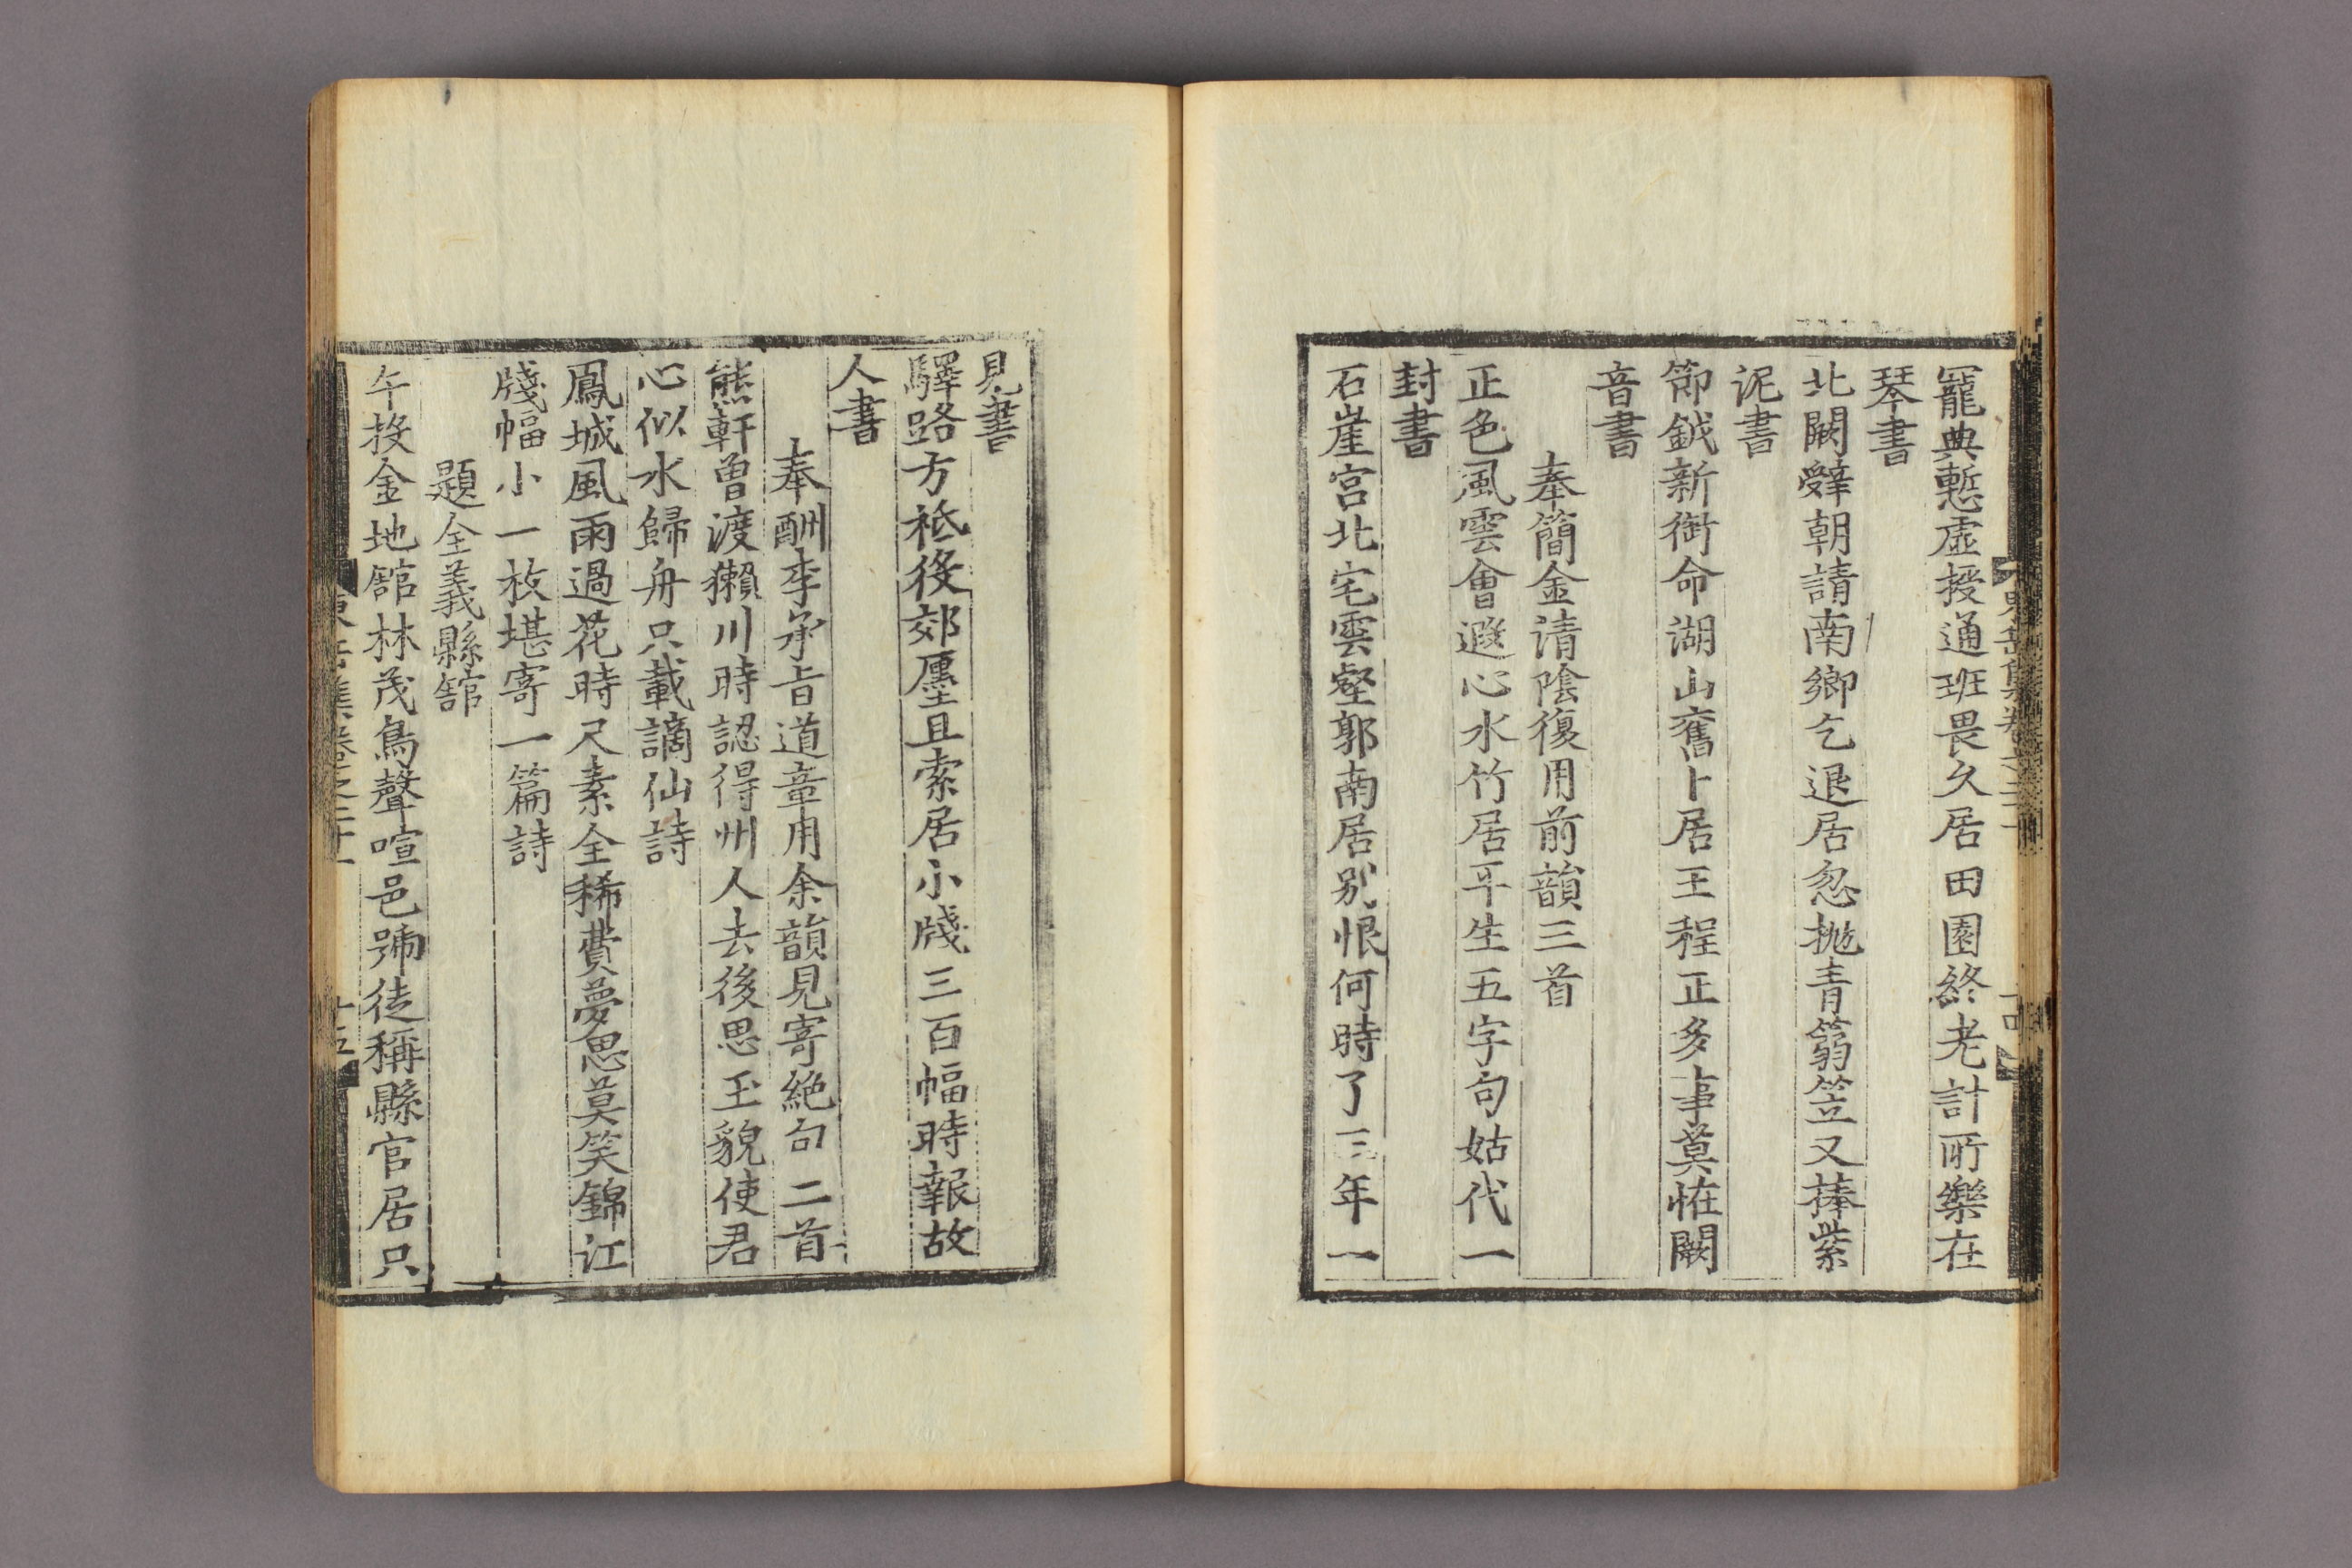 寵典慙虛授通班畏久居田園終老計所樂在
琴書
北闕辭朝請南鄉乞退居忽抛青篛笠又捧紫
泥書
節鉞新銜命湖山舊卜居王程正多事莫恠闕
音書
奉簡金淸陰復用前韻三首
正色風雲會遐心水竹居平生五字句姑代一
封書
石崖宮北宅雲壑郭南居别恨何時了三年一
見書
驛路方祗役郊廛且索居小牋三百幅時報故
人書
奉酬李承旨道章用余韻見寄絶句二首
熊軒曾渡獺川時認得州人去後思玉貌使君
心似水歸舟只載謫仙詩
鳳城風雨過花時尺素全稀費夢思莫笑錦江
牋幅小一枚堪寄一篇詩
題全義縣舘
午投金地舘林茂鳥聲喧邑號徒稱縣官居只
十五